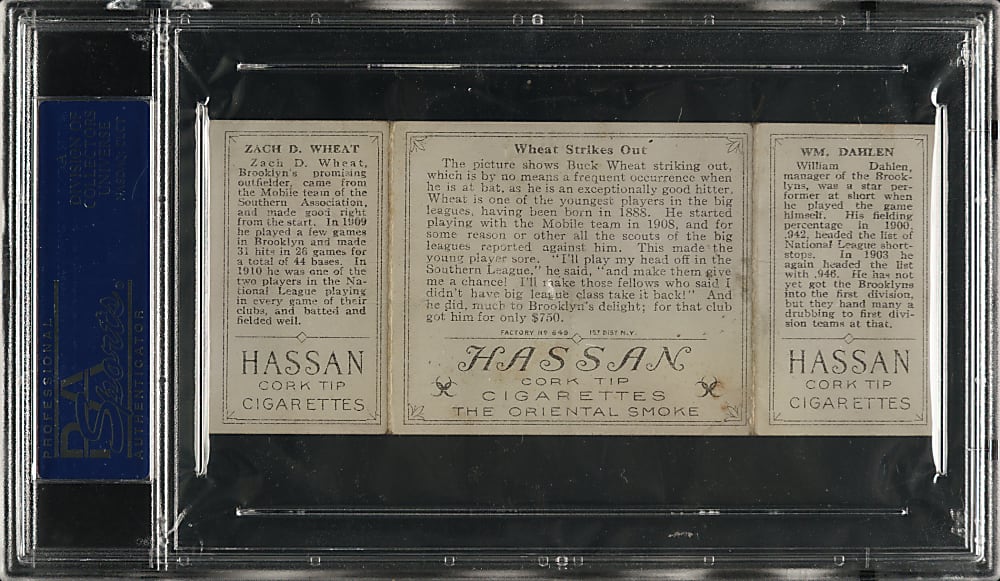 PROFESSIONAL
PSA
Sports
AUTHENTICATOR
DIVISION OF
COLLECTORS
UNIVERSE
ZACH D. WHEAT
Zach D. Wheat,
Brooklyn's promising
outfielder, came from
the Mobile team of the
Southern Association,
and made good right
from the start. In 1909
he played a few games
in Brooklyn and made
31 hits in 26 games for
a total of 44 bases. In
1910 he was one of the
two players in the Na-
tional League playing
in every game of their
clubs, and batted and
fielded well.
HASSAN
CORK TIP
CIGARETTES
Wheat Strikes Out
The picture shows Buck Wheat striking out,
which is by no means a frequent occurrence when
he is at bat, as he is an exceptionally good hitter.
Wheat is one of the youngest players in the big
leagues, having been born in 1888. He started
playing with the Mobile team in 1908, and for
some reason or other all the scouts of the big
leagues reported against him. This made the
young player sore. "I'll play my head off in the
Southern League," he said, "and make them give
me a chance! I'll make those fellows who said I
didn't have big league class take it back!" And
he did, much to Brooklyn's delight; for that club
got him for only $750.
FACTORY Nº 649 1ST DIST N.Y.
HASSAN
CORK TIP
CIGARETTES
THE ORIENTAL SMOKE
WM. DAHLEN
William Dahlen,
manager of the Brook-
lyns, was a star per-
former at short when
he played the game
himself. His fielding
percentage in 1900,
.942, headed the list of
National League short-
stops. In 1903 he
again headed the list
with .946. He has not
yet got the Brooklyns
into the first division,
but they hand many a
drubbing to first divi-
sion teams at that.
HASSAN
CORK TIP
CIGARETTES